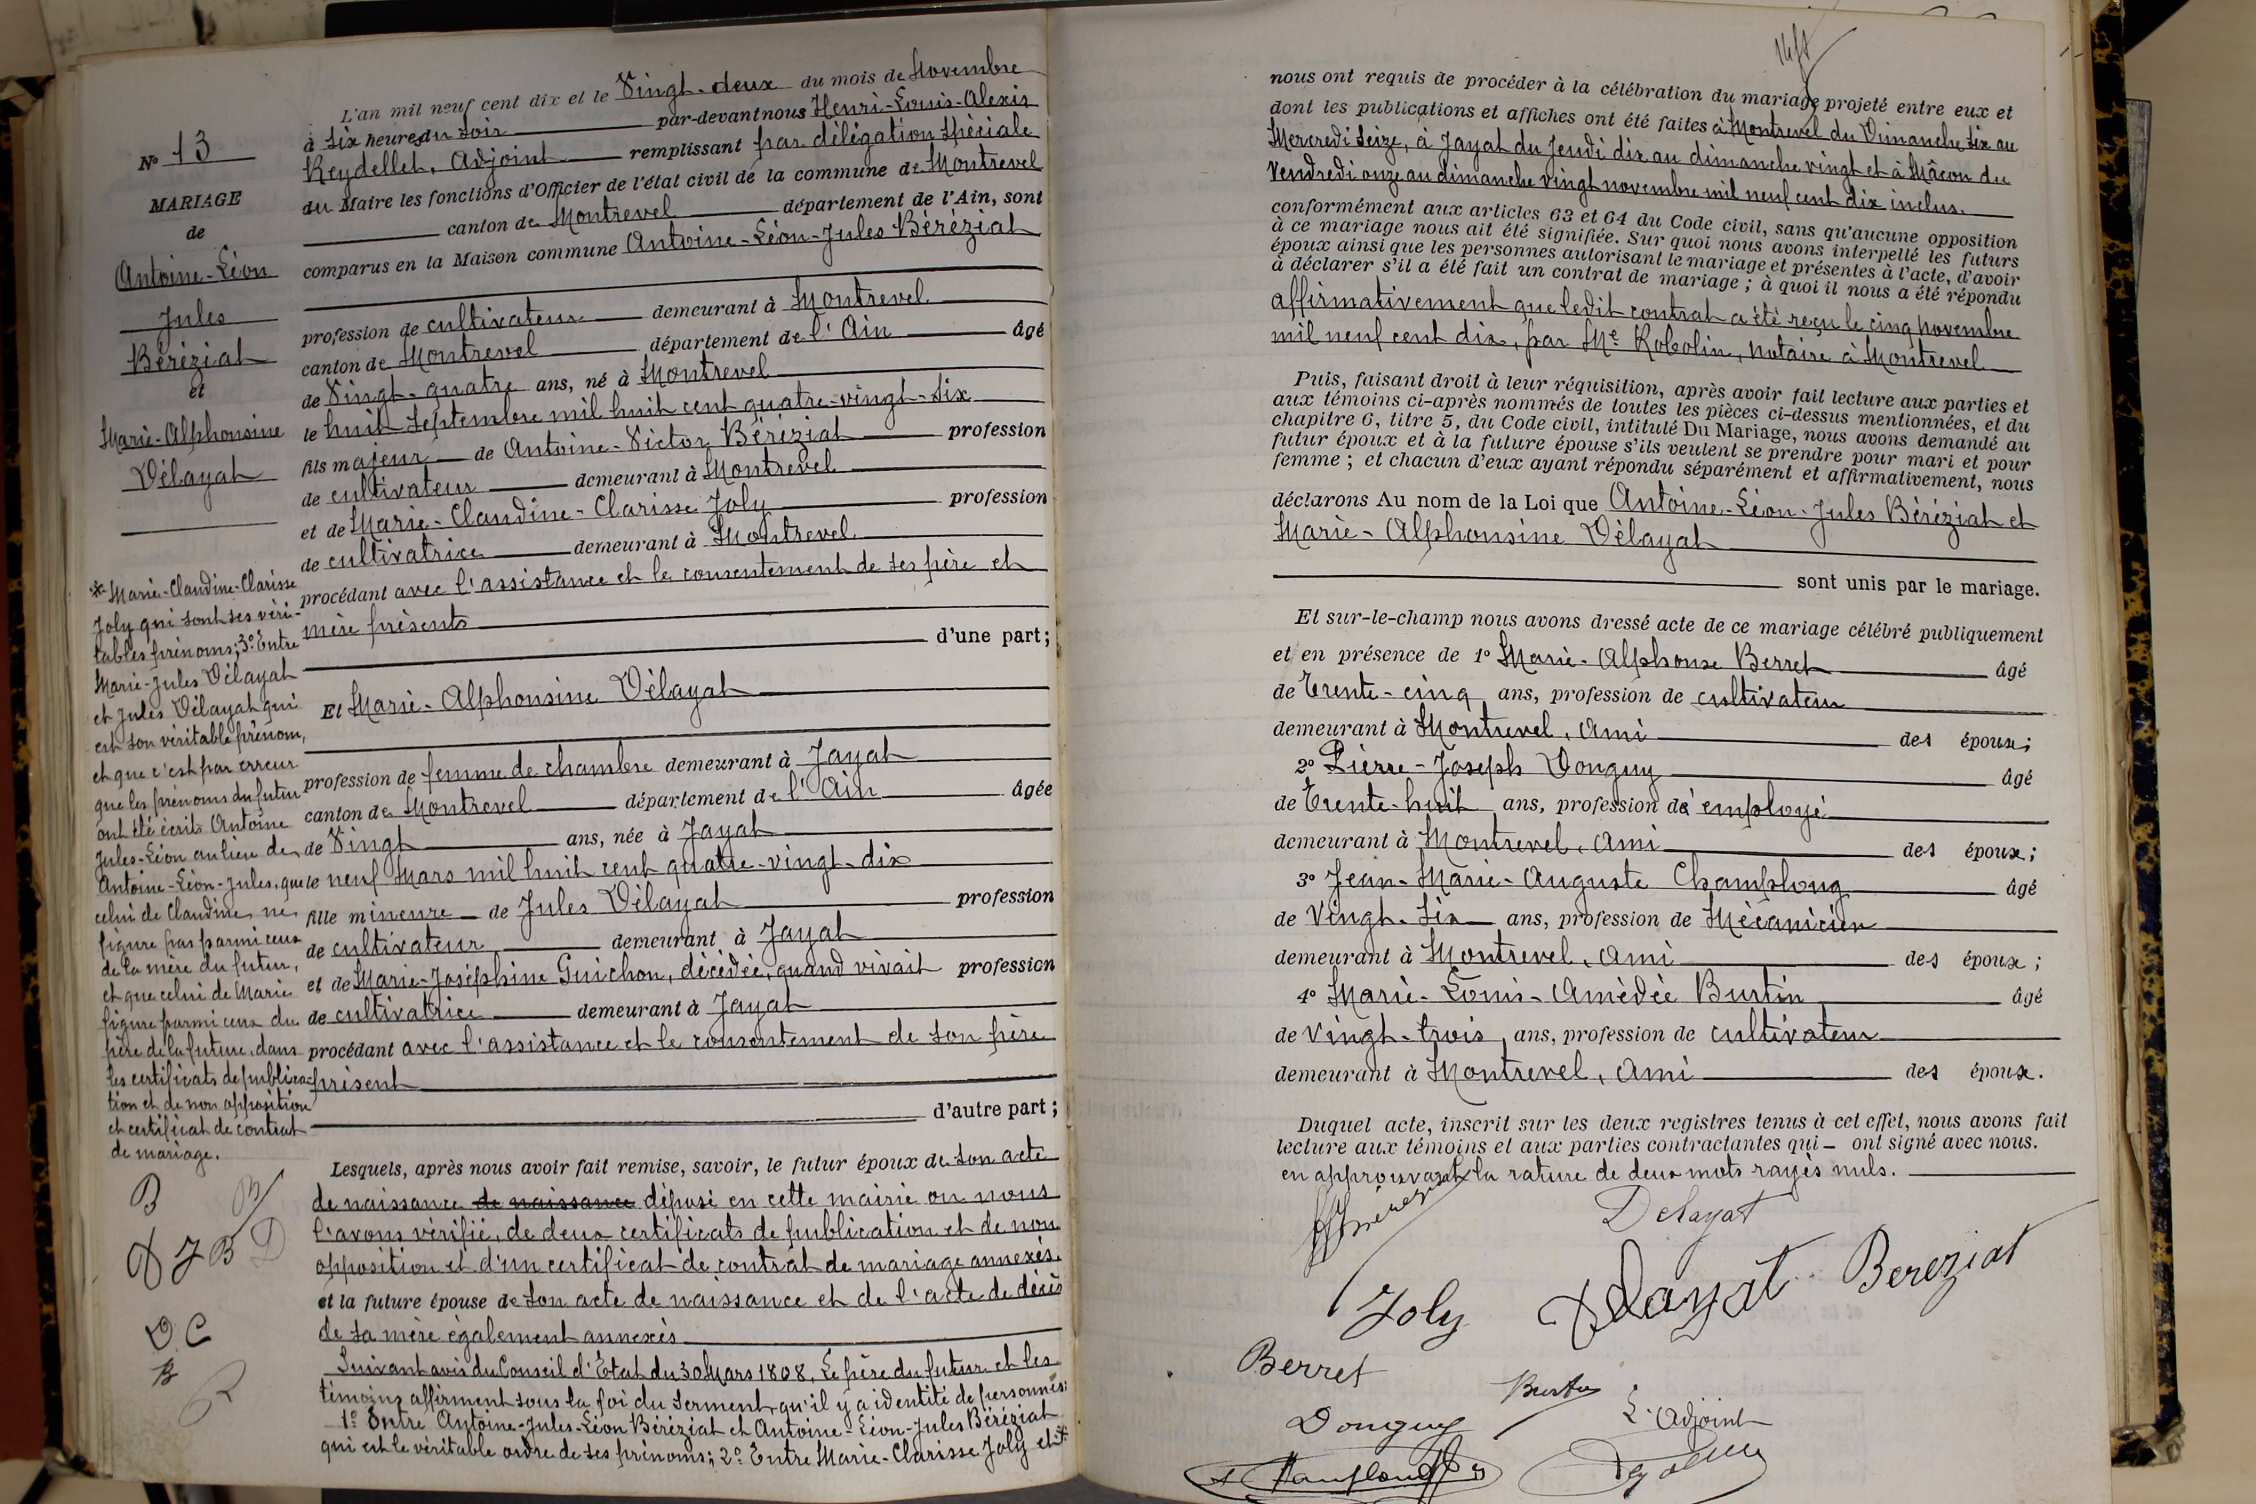 N° 13
MARIAGE
de
Antoine-Léon
Jules
Béréziat
et
Marie-Alphonsine
Délayat
L'an mil neuf cent dix et le Vingt-deux du mois de Novembre
à Six heures du Soir par-devant nous Henri-Louis-Alexis
Reydellet, Adjoint remplissant par délégation Spéciale
du Maire les fonctions d'Officier de l'état civil de la commune de Montrevel
canton de Montrevel département de l'Ain, sont
comparus en la Maison commune Antoine-Léon-Jules Béréziat
profession de cultivateur demeurant à Montrevel
canton de Montrevel département de l'Ain âgé
de Vingt-quatre ans, né à Montrevel
le huit Septembre mil huit cent quatre-vingt-six
fils majeur de Antoine-Victor Béréziat profession
de cultivateur demeurant à Montrevel
et de Marie-Claudine-Clarisse Joly profession
de cultivatrice demeurant à Montrevel
procédant avec l'assistance et le consentement de ses père et
mère présents
d'une part;
Et Marie-Alphonsine Délayat
profession de femme de chambre demeurant à Jayat
canton de Montrevel département de l'Ain âgée
de Vingt ans, née à Jayat
le neuf Mars mil huit cent quatre-vingt-dix
fille mineure de Jules Délayat profession
de cultivateur demeurant à Jayat
et de Marie-Joséphine Guichon, décédée, quand vivait profession
de cultivatrice demeurant à Jayat
procédant avec l'assistance et le consentement de son père
présent
d'autre part;
Lesquels, après nous avoir fait remise, savoir, le futur époux de son acte
de naissance de naissance déposé en cette mairie ou nous
l'avons vérifié, de deux certificats de publication et de non
opposition et d'un certificat de contrat de mariage annexés.
et la future épouse de son acte de naissance et de l'acte de décès
de sa mère également annexés
Suivant avis du Conseil d'Etat du 30 Mars 1808, Le père du futur et les
témoins affirment sous la foi du serment qu'il y a identité de personnes:
1° Entre Antoine-Jules-Léon Béréziat et Antoine-Léon-Jules Béréziat
qui est le véritable ordre de ses prénoms; 2° Entre Marie-Clarisse Joly et *
* Marie-Claudine-Clarisse
Joly qui sont ses véri-
tables prénoms; 3° Entre
Marie-Jules Délayat
et Jules Délayat qui
est son véritable prénom,
et que c'est par erreur
que les prénoms du futur
ont été écrits Antoine
Jules-Léon au lieu de
Antoine-Léon-Jules, que
celui de Claudine ne
figure pas parmi ceux
de la mère du futur,
et que celui de Marie
figure parmi ceux du
père de la future, dans
les certificats de publica-
tion et de non opposition
et certificat de contrat
de mariage.
B
J B D
D C
B
nous ont requis de procéder à la célébration du mariage projeté entre eux et
dont les publications et affiches ont été faites à Montrevel du Dimanche Six au
Mercredi Seize, à Jayat du Jeudi dix au dimanche vingt et à Mâcon du
Vendredi onze au dimanche vingt novembre mil neuf cent dix inclus.
conformément aux articles 63 et 64 du Code civil, sans qu'aucune opposition
à ce mariage nous ait été signifiée. Sur quoi nous avons interpellé les futurs
époux ainsi que les personnes autorisant le mariage et présentes à l'acte, d'avoir
à déclarer s'il a été fait un contrat de mariage; à quoi il nous a été répondu
affirmativement que ledit contrat a été reçu le cinq novembre
mil neuf cent dix, par Me Robolin, notaire à Montrevel
Puis, faisant droit à leur réquisition, après avoir fait lecture aux parties et
aux témoins ci-après nommés de toutes les pièces ci-dessus mentionnées, et du
chapitre 6, titre 5, du Code civil, intitulé Du Mariage, nous avons demandé au
futur époux et à la future épouse s'ils veulent se prendre pour mari et pour
femme; et chacun d'eux ayant répondu séparément et affirmativement, nous
déclarons Au nom de la Loi que Antoine-Léon-Jules Béréziat et
Marie-Alphonsine Délayat
sont unis par le mariage.
Et sur-le-champ nous avons dressé acte de ce mariage célébré publiquement
et en présence de 1° Marie-Alphonse Berret âgé
de Trente-cinq ans, profession de cultivateur
demeurant à Montrevel, Ami des époux;
2° Pierre-Joseph Donguy âgé
de Trente-huit ans, profession d'employé
demeurant à Montrevel, Ami des époux;
3° Jean-Marie-Auguste Champlong âgé
de Vingt-Six ans, profession de Mécanicien
demeurant à Montrevel, Ami des époux;
4° Marie-Louis-Amédée Burtin âgé
de Vingt-trois ans, profession de cultivateur
demeurant à Montrevel, Ami des époux.
Duquel acte, inscrit sur les deux registres tenus à cet effet, nous avons fait
lecture aux témoins et aux parties contractantes qui ont signé avec nous.
en approuvant la rature de deux mots rayés nuls.
Delayat
Joly Delayat Bereziat
Berret Burtin
Donguy L'Adjoint